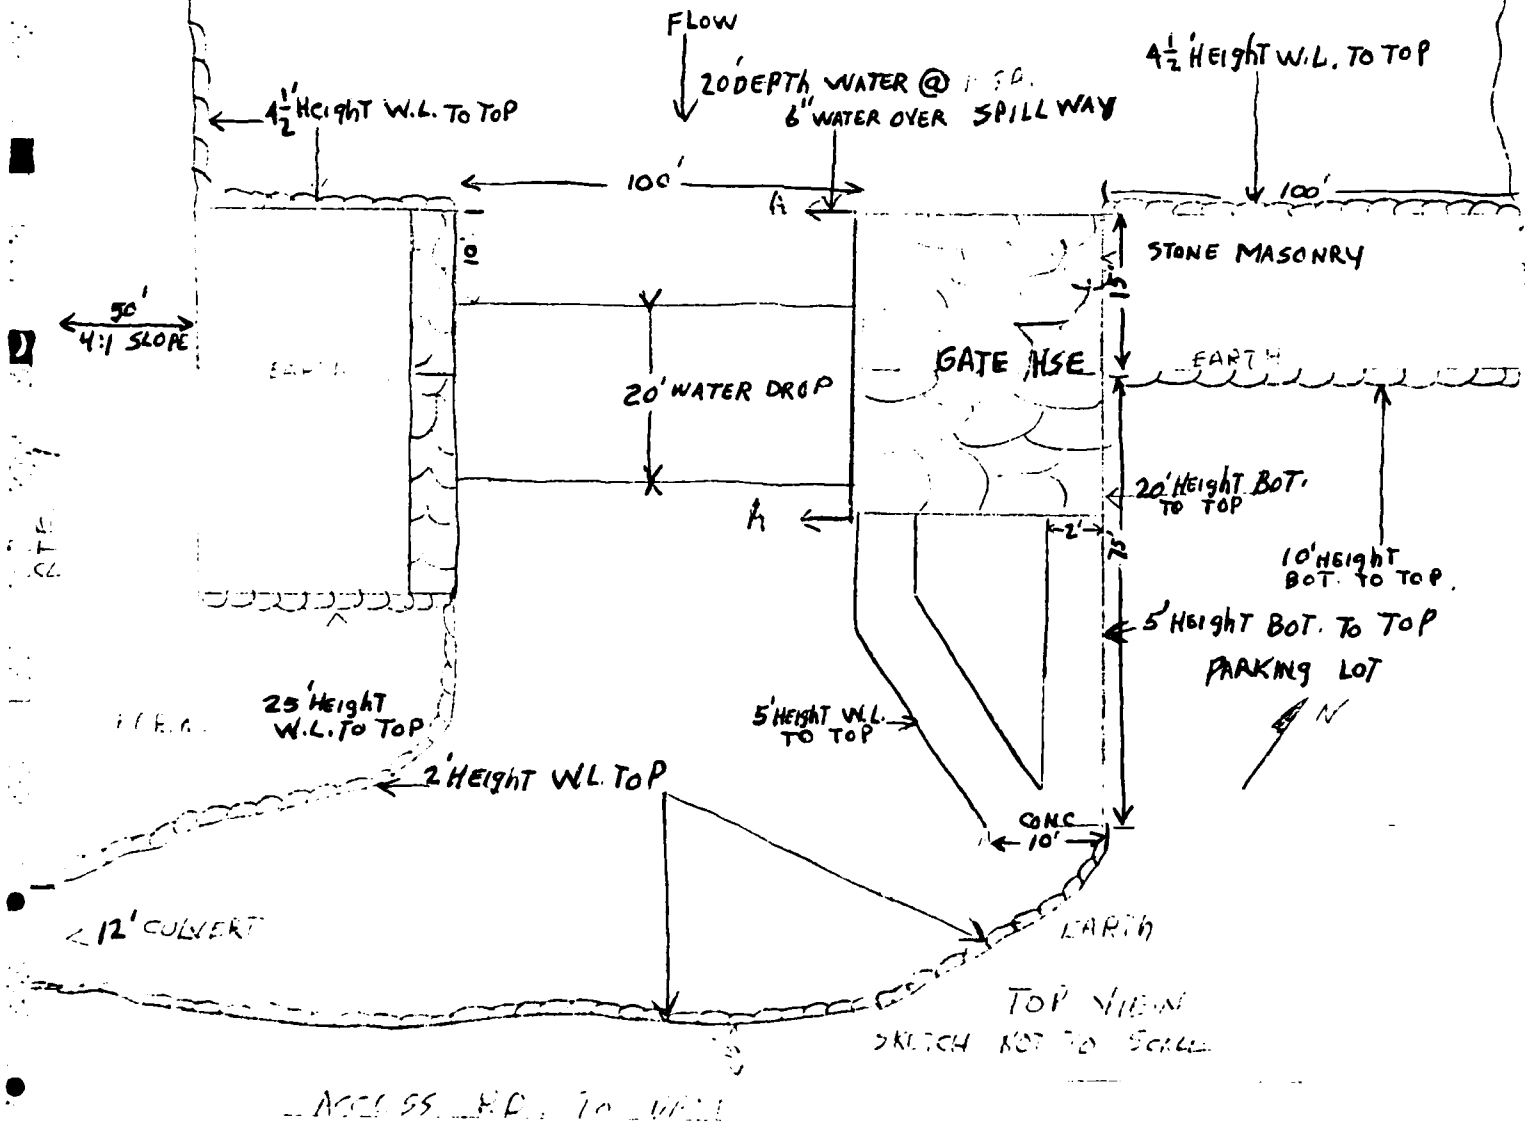 FLOW
20' DEPTH WATER @
6" WATER OVER SPILLWAY
4 1/2' HEIGHT W.L. TO TOP
4 1/2' HEIGHT W.L. TO TOP
100'
100'
A
10'
STONE MASONRY
15'
50'
4:1 SLOPE
EARTH
GATE HSE
EARTH
20' WATER DROP
20' HEIGHT BOT.
TO TOP
A
2'
75'
10' HEIGHT
BOT. TO TOP.
5' HEIGHT BOT. TO TOP
PARKING LOT
N
25' HEIGHT
W.L. TO TOP
5' HEIGHT W.L.
TO TOP
2' HEIGHT W.L. TOP
CONC
10'
12' CULVERT
EARTH
TOP VIEW
SKETCH NOT TO SCALE
ACCESS RD. TO